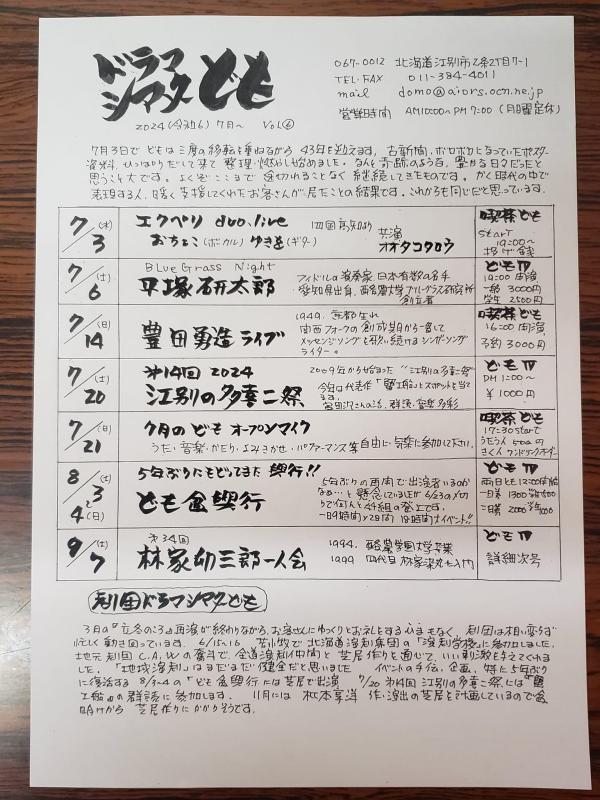 ドラマ
シアター ども
2024(令和6) 7月〜 Vol⑥
067-0012 北海道江別市2条2丁目7-1
TEL・FAX 011-384-4011
mail domo@aiors.ocn.ne.jp
営業時間 AM10:00〜PM7:00 (月曜定休)
7月3日で どもは三度の移転を重ねながら 43年を迎えます。古新聞、ボロボロになっていたポスター
資料、ひっぱりだして来て 整理・燃やし始めました。なんと奇跡のような、豊かな日々だったと
思うことです。よくぞここまで 途切れることなく 継続してきたものです。かく時代の中で
表現する人、暖く支援してくれたお客さんが居たことの結果です。これからも同じだと思っています。
7/3(水)
エクペリ duo.live 四国高知より
おちょこ(ボーカル) ゆきを(ギター) 共演 オオタコタロウ
喫茶ども
start 19:00〜
投げ銭
7/6(土)
Blue Grass Night
平塚研太郎
フィドルの演奏家 日本有数の名手
愛知県出身、酪農大学ブルーグラス研究所
創立者
どもⅣ
19:00開演
一般 3000円
学生 2500円
7/14(日)
豊田勇造ライブ
1949. 京都生れ
関西フォークの創成期から一貫して
メッセージソングを歌い続けるシンガーソング
ライター。
喫茶ども
16:00開演
予約 3000円
7/20(土)
第14回 2024
江別の多喜二祭
2009年から始まった "江別の多喜二祭"
今年は代表作「蟹工船」にスポットを当て
ます。
宮田汎さんの話、群読、音楽 多彩
どもⅣ
PM 1:00〜
¥1000円
7/21(日)
7月の ども オープンマイク
うた・音楽・かたり・よみきかせ・パフォーマンス等 自由に・気楽に参加して下さい。
喫茶ども
17:30 start
うたう人 500円
きく人 ワンドリンクオーダー
8/3(土)〜4(日)
5年ぶりにもどってきた 興行!!
ども金興行
5年ぶりの再開で出演者いるか
なぁ…と懸念していましたが 6/23の〆切
りで何んと49組の登上です。
一日9時間×2日間 18時間大イベント!!
どもⅣ
両日とも12:00開始
一日券 1300 学生500
二日券 2000 学生1000
9/7(土)
第34回
林家卯三郎一人会
1994. 酪農学園大学卒業
1999 四代目 林家染丸に入門
どもⅣ
詳細次号
劇団ドラマシアターども
3月の「立冬のころ」再演が終わりながら、お客さんにゆっくりとお礼をするひまもなく、劇団は相い変らず
忙しく動き回っています。 6/15.16 苫小牧で 北海道演劇集団の「演劇学校」に参加しました。
地元 劇団C.A.Wの奮斗で、全道演劇仲間と 芝居作りを通じて、いい刺激を与えてくれま
した。「地域演劇」はまだまだ健全だと思いました。 イベントの手伝、企画、特に5年ぶり
に復活する 8/3〜4の「ども金興行」には芝居で出演 7/20 第14回 江別の多喜二祭には「蟹
工船」の群読に参加します。 11月には 松本享洋 作・演出の芝居を計画しているので盆
明けから 芝居作りにかかりそうです。